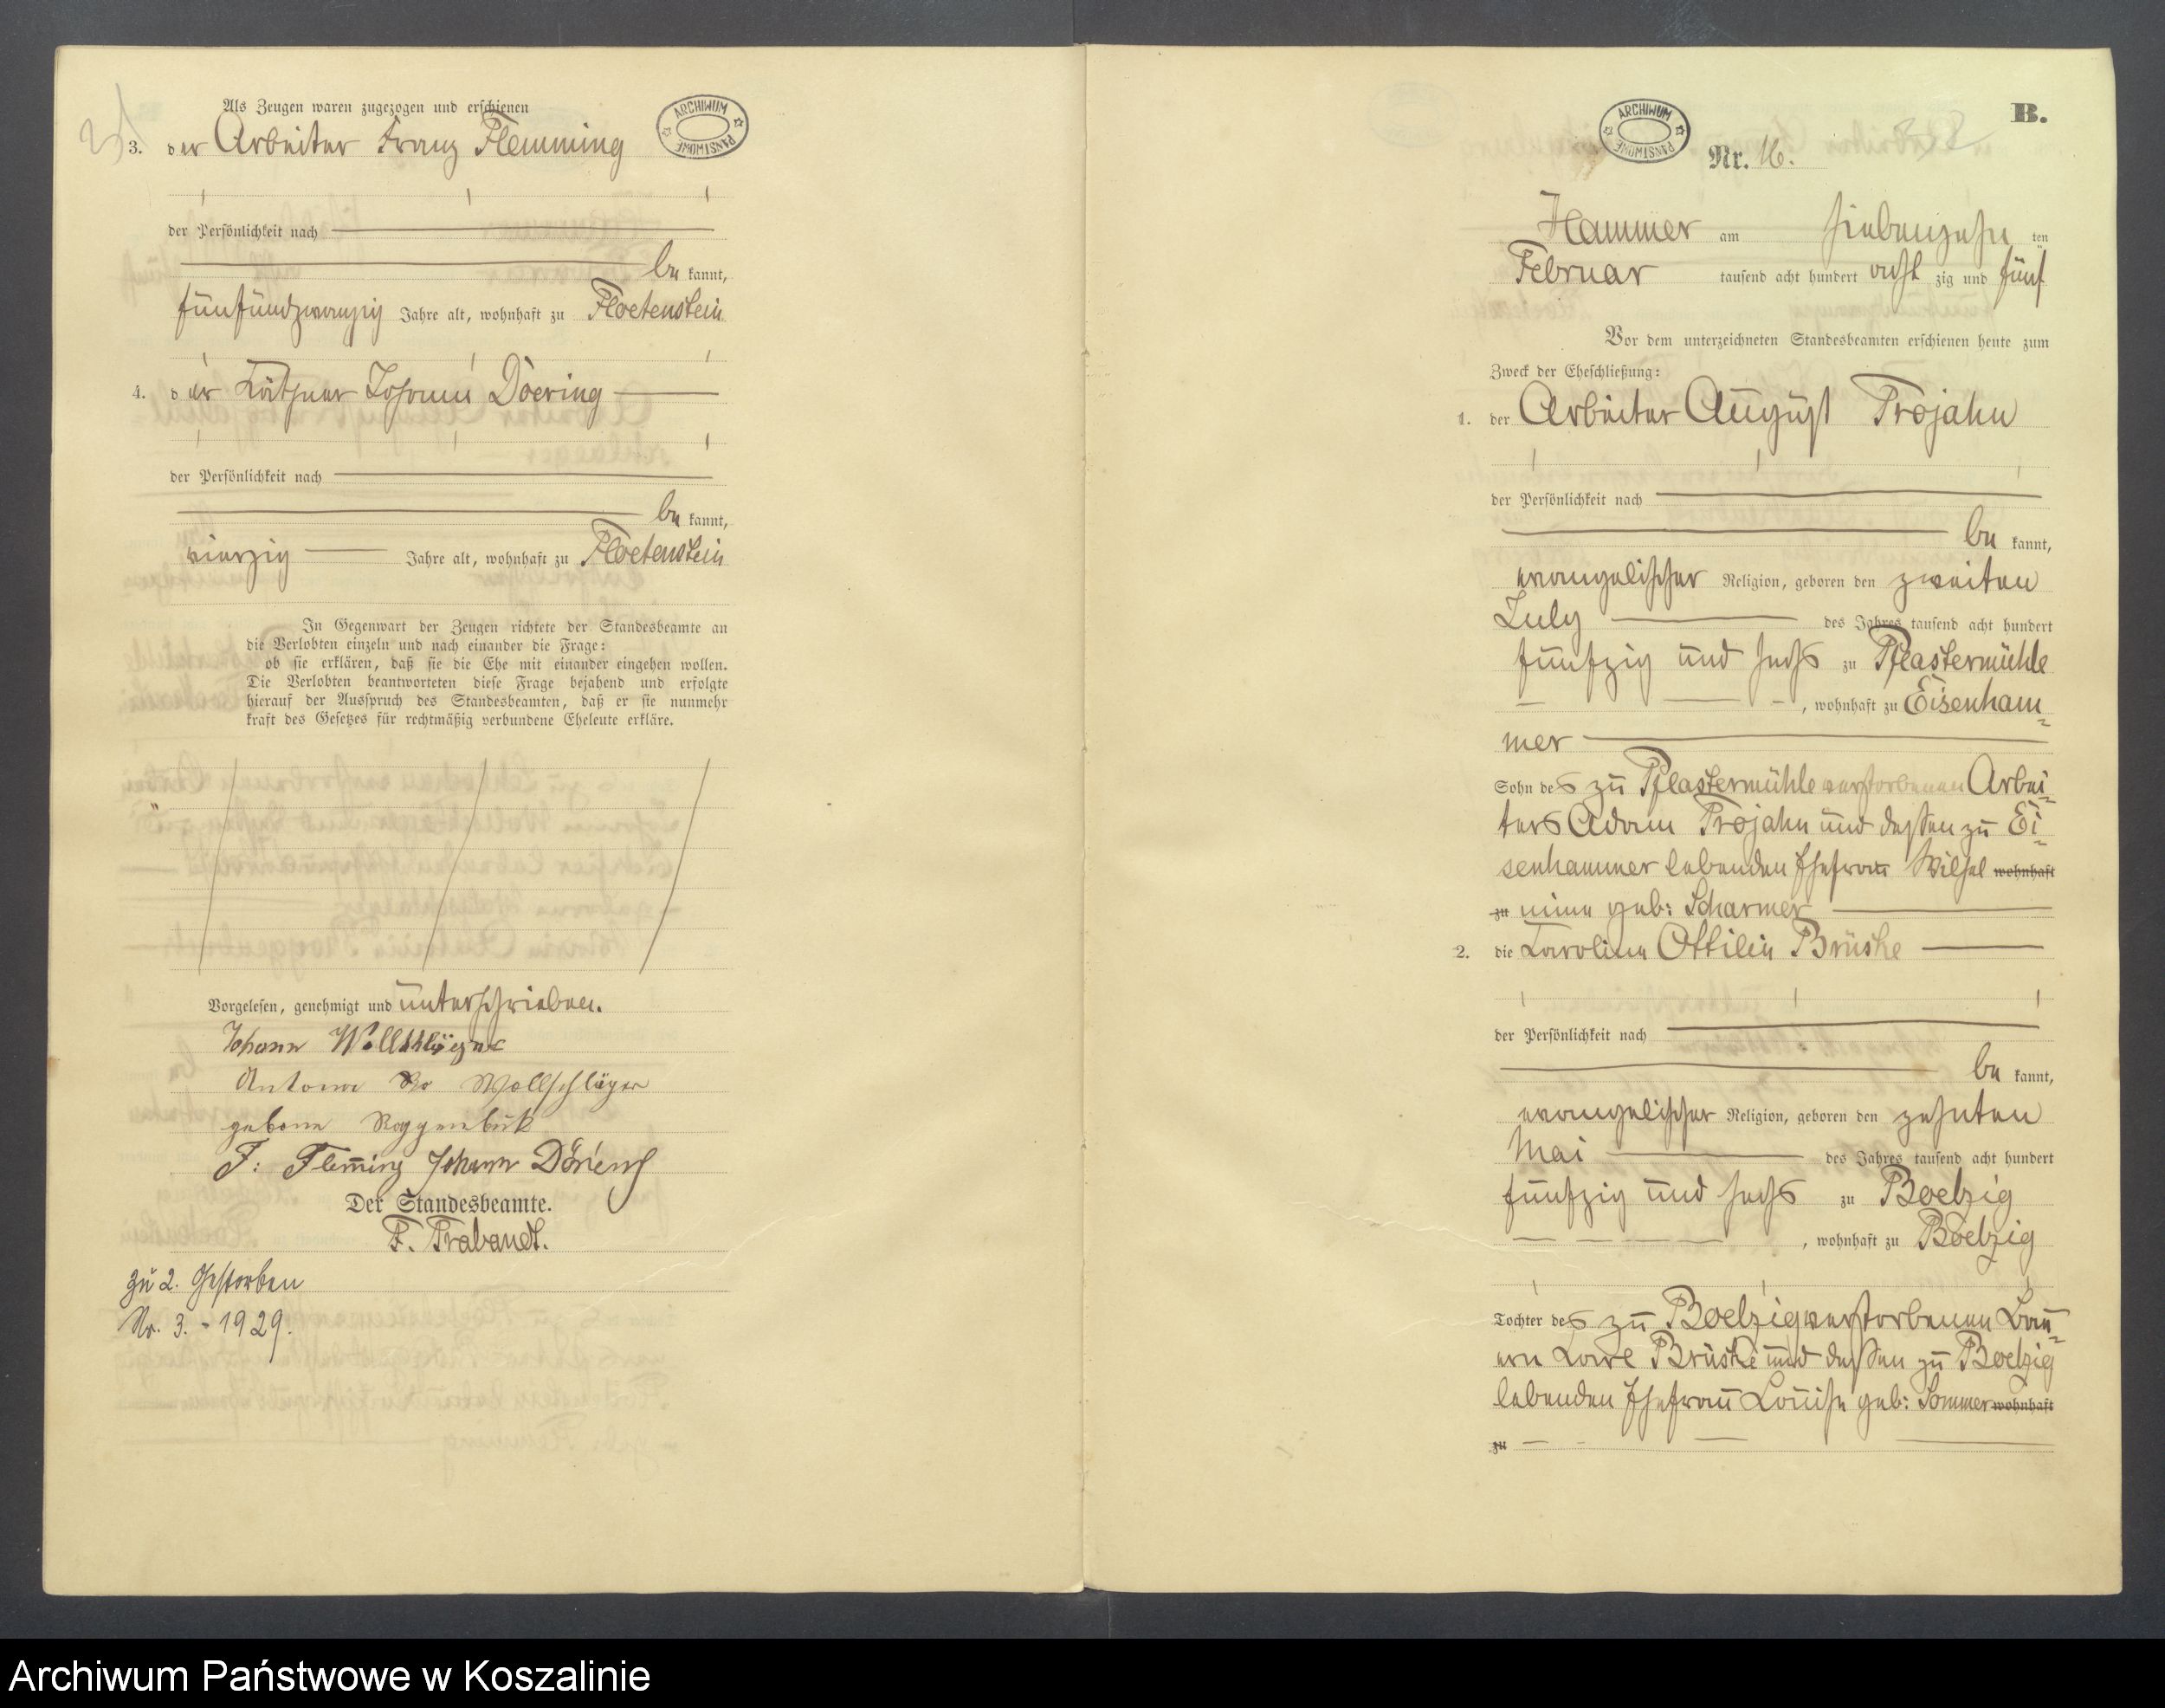 Als Zeugen waren zugezogen und erschienen
3. der Arbeiter Franz Flemming
der Persönlichkeit nach
be kannt,
fünfundzwanzig Jahre alt, wohnhaft zu Floetenstein
4. der Käthner Johann Doering
der Persönlichkeit nach
be kannt,
vierzig Jahre alt, wohnhaft zu Floetenstein
In Gegenwart der Zeugen richtete der Standesbeamte an
die Verlobten einzeln und nach einander die Frage:
ob sie erklären, daß sie die Ehe mit einander eingehen wollen.
Die Verlobten beantworteten diese Frage bejahend und erfolgte
hierauf der Ausspruch des Standesbeamten, daß er sie nunmehr
kraft des Gesetzes für rechtmäßig verbundene Eheleute erkläre.
Vorgelesen, genehmigt und unterschrieben.
Johann Wollschläger
Antonie Ro Wollschläger
geborne Roggenbuk
F: Flem̄ing Johann
Der Standesbeamte.
F. Trabandt.
zu 2. Gestorben
Nr. 3. - 1929.
ARCHIWUM PAŃSTWOWE
ARCHIWUM PAŃSTWOWE
B.
Nr. 16.
Hammer am siebenzehn ten
Februar tausend acht hundert acht zig und fünf
Vor dem unterzeichneten Standesbeamten erschienen heute zum
Zweck der Eheschließung:
1. der Arbeiter August Trojahn
der Persönlichkeit nach
be kannt,
evangelischer Religion, geboren den zweiten
July des Jahres tausend acht hundert
fünfzig und sechs zu Pflastermühle
, wohnhaft zu Eisenham-
mer
Sohn des zu Pflastermühle verstorbenen Arbei-
ters Adam Trojahn und dessen zu Ei-
senhammer lebenden Ehefrau Wilhel wohnhaft
zu mine geb: Scharmer
2. die Caroline Ottilie Brüske
der Persönlichkeit nach
be kannt,
evangelischer Religion, geboren den zehnten
Mai des Jahres tausend acht hundert
fünfzig und sechs zu Boelzig
, wohnhaft zu Boelzig
Tochter des zu Boelzig verstorbenen Bau-
ern Brüske und dessen zu Boelzig
lebenden Ehefrau Louise geb: Sommer wohnhaft
zu
Archiwum Państwowe w Koszalinie